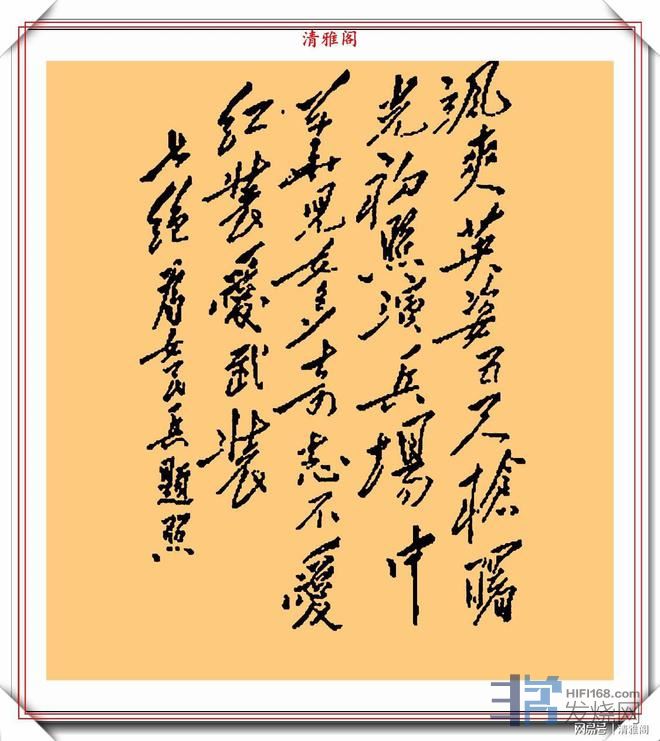 清雅阁
颯爽英姿五尺槍曙
光初照演兵場中
華兒女多奇志不愛
红装愛武装
七絕為女民兵題照
HIFI168.com
发烧网
网易号 | 清雅阁